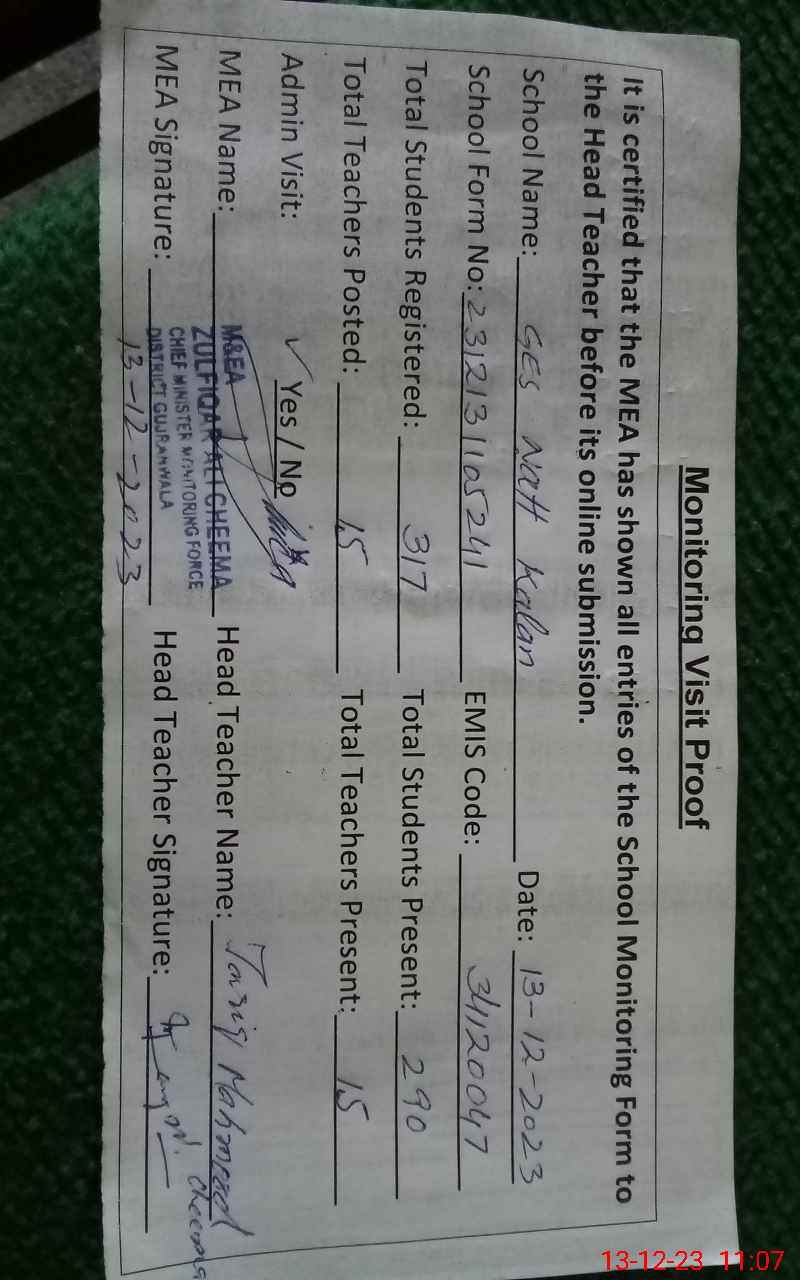 Monitoring Visit Proof
It is certified that the MEA has shown all entries of the School Monitoring Form to
the Head Teacher before its online submission.
School Name: GES Natt Kalan Date: 13-12-2023
School Form No: 231213105241 EMIS Code: 34120047
Total Students Registered: 317 Total Students Present: 290
Total Teachers Posted: 15 Total Teachers Present: 15
Admin Visit: ✓ Yes / No
MEA Name: M&EA
ZULFIQAR ALI CHEEMA
CHIEF MINISTER MONITORING FORCE
DISTRICT GUJRANWALA
Head Teacher Name: Tariq Mahmood Cheema
MEA Signature: 13-12-2023 Head Teacher Signature:
13-12-23 11:07